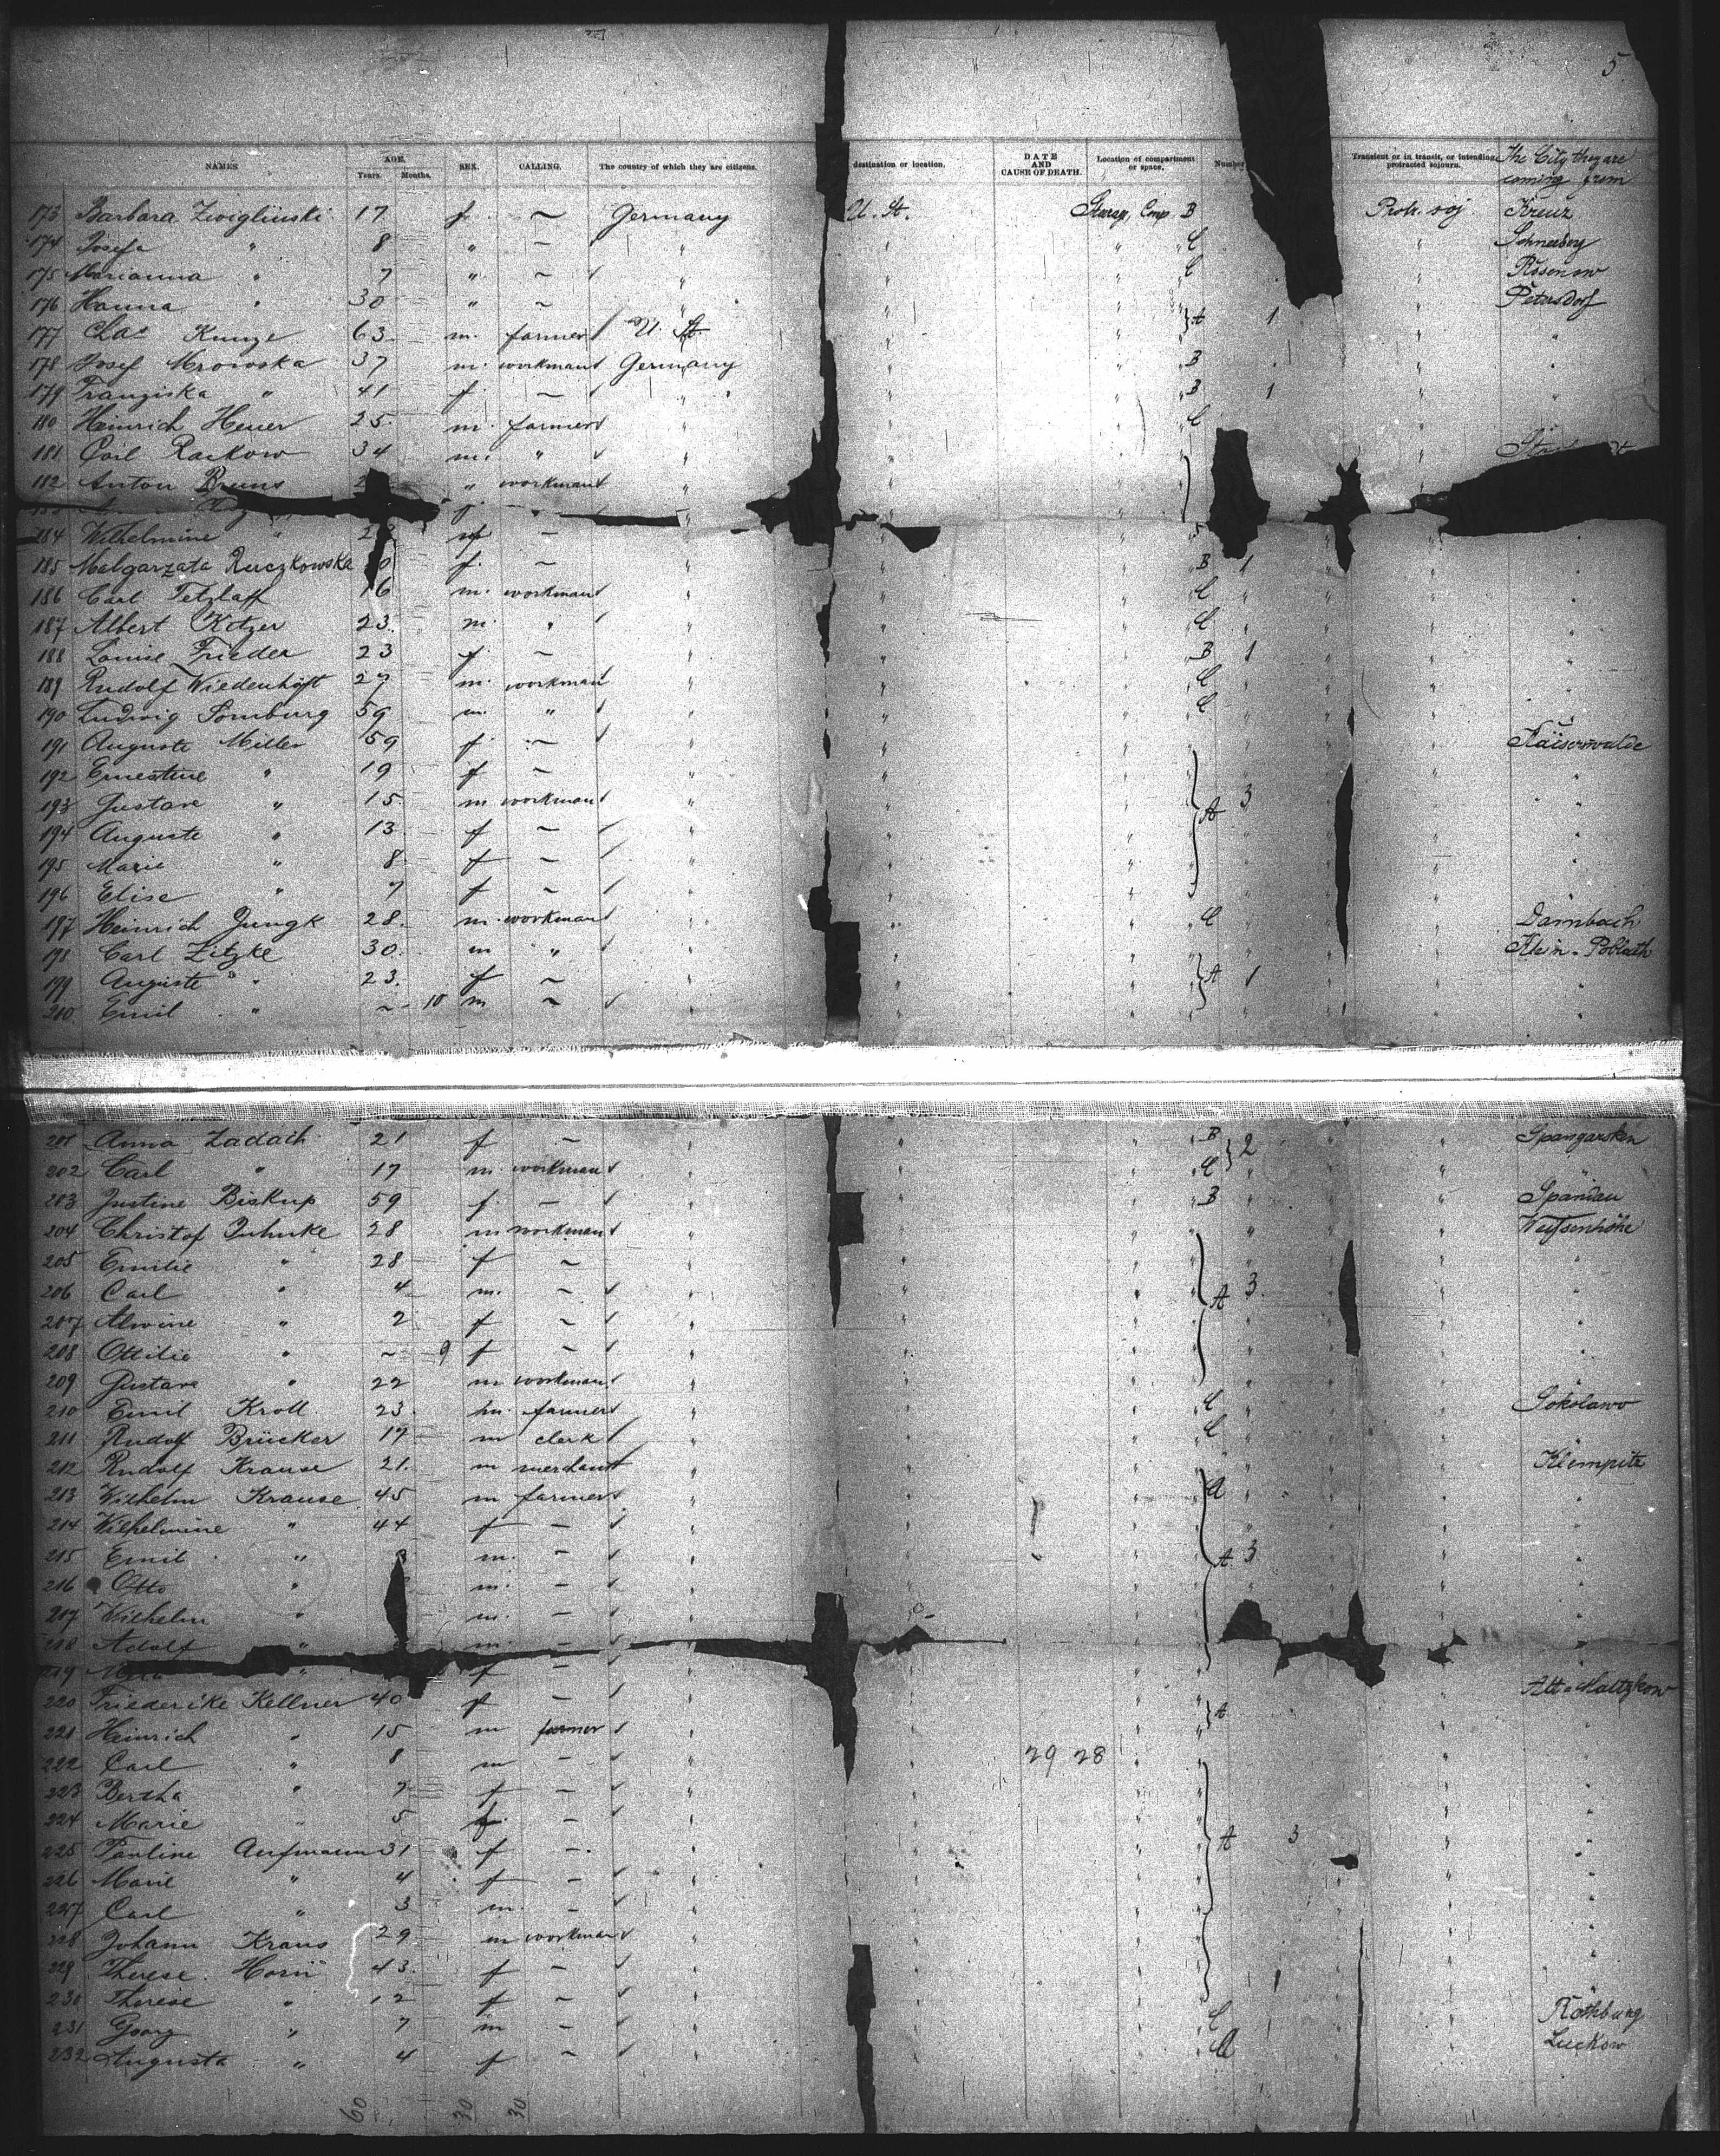 5
NAMES AGE. Years. Months. SEX. CALLING. The country of which they are citizens. destination or location. DATE AND CAUSE OF DEATH. Location of compartment or space. Number Transient or in transit, or intending protracted sojourn. The City they are coming from
173 Barbara 17 f. ~ Germany U. St. Comp. B Prot. soj Kreuz
174 Josefa " 8 " ~ " " " C " Schneeberg
175 Marianna " 7 " ~ " " " C " Rosenow
176 Hanna " 30 " ~ " " " " Petersdorf
177 Chas Kunze 63 m. farmer U. St. " " A 1 " "
178 Josef Mrowska 37 m. workman Germany " " B " "
179 Franziska " 41 f. ~ " " " B 1 " "
180 Heinrich Heuer 25 m. farmer " " " C " "
181 Carl Rackow 34 m. " " " "
182 Anton Bruns " workman " "
184 Wilhelmine " f ~ "
185 Malgarzata Ruczkowska f. ~ " " " B 1 " "
186 Carl Tetzlaff 16 m. workman " " " C " " "
187 Albert Kitzer 23 m. " " " " C " " "
188 Louise Frieder 23 f ~ " " " B 1 " "
189 Rudolf Wiedenhöft 27 m. workman " " " C " " "
190 Ludwig Somburg 59 m. " " " " C " "
191 Auguste Miller 59 f. ~ " " " " Kaiserwalde
192 Ernestine " 19 f ~ " " " " "
193 Gustave " 15 m workman " " " A 3 " "
194 Auguste " 13 f ~ " " " " "
195 Marie " 8 f ~ " " " " "
196 Elise " 7 f ~ " " " " "
197 Heinrich Jungk 28 m. workman " " " C " Dambach
198 Carl Zitzke 30 m " " " " " Klein-Poblath
199 Auguste " 23 f ~ " " " A 1 " "
200 Emil " ~ 10 m ~ " " " " "
201 Anna Zadach 21 f ~ " " " B 2 " Spangarsken
202 Carl " 17 m. workman " " " C " "
203 Justine Biskup 59 f. ~ " " " B " " Spandau
204 Christof Juhnke 28 m workman " " " " " Weissenhöhe
205 Emilie " 28 f ~ " " " " "
206 Carl " 4 m. ~ " " " A 3. " "
207 Alwine " 2 f ~ " " " " "
208 Ottilie " ~ 9 f ~ " " " " "
209 Gustave " 22 m workman " " " " "
210 Emil Kroll 23 m. farmer " " " C " " Sokolawo
211 Rudolf Brücker 17 m clerk " " " C " " "
212 Rudolf Krause 21. m merchant " " " " " Klempitz
213 Wilhelm Krause 45 m farmer " " " A " " "
214 Wilhelmine " 44 f ~ " " " " "
215 Emil " m. ~ " " " A. 3 " "
216 Otto " m. ~ " " " " "
217 Wilhelm " m. ~ " " " " "
218 Adolf " m. ~ " "
219 " f ~ " " " "
220 Friederike Kellner 40 f ~ " " " A " Alt-Maltzkow
221 Heinrich " 15 m farmer " " " " "
222 Carl " 8 m ~ " " 29 28 " " "
223 Bertha " 7 f ~ " " " " "
224 Marie " 5 f ~ " " " " "
225 Pauline Aufmann 31 f ~ " " " A 3 " "
226 Marie " 4 f ~ " " " " "
227 Carl " 3 m. ~ " " " " "
228 Johann Kraus 29 m workman " " " " "
229 Therese Horn 43 f ~ " " " 1 " "
230 Therese " 12 f ~ " " " " Rothburg
231 Georg " 7 m ~ " " " C " Luckow
232 Augusta " 4 f ~ " " " C "
60 30 30